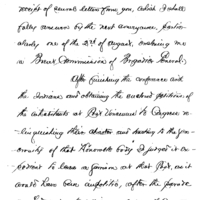 receipt of several letters from you, which I shall
fully answer by the next conveyance, particu-
larly one of the 23d of August, enclosing me
a Brevet Commission of Brigadier General.
After finishing the conference with
the Indians, and obtaining the
the inhabitants at Post Vincennes to Congress
relinquishing their charter and trusting to the gen-
erosity of that Honorable body, I judged it ex-
pedient to leave a garrison at that Post, as it
would have been, after the parade